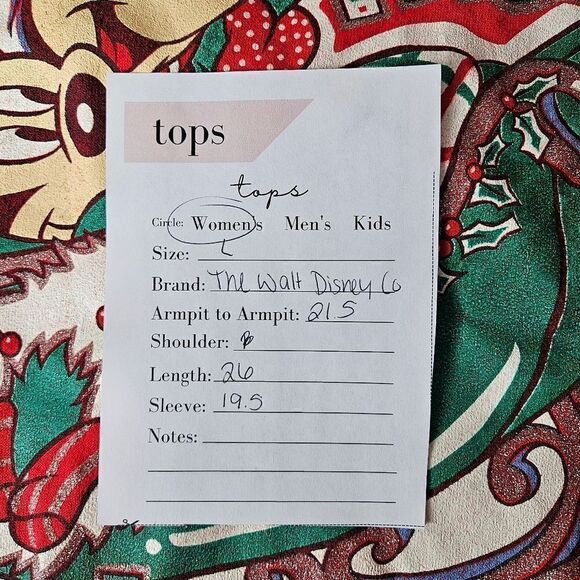 tops
tops
Circle: Women's Men's Kids
Size: L
Brand: The Walt Disney Co
Armpit to Armpit: 21.5
Shoulder:
Length: 26
Sleeve: 19.5
Notes: